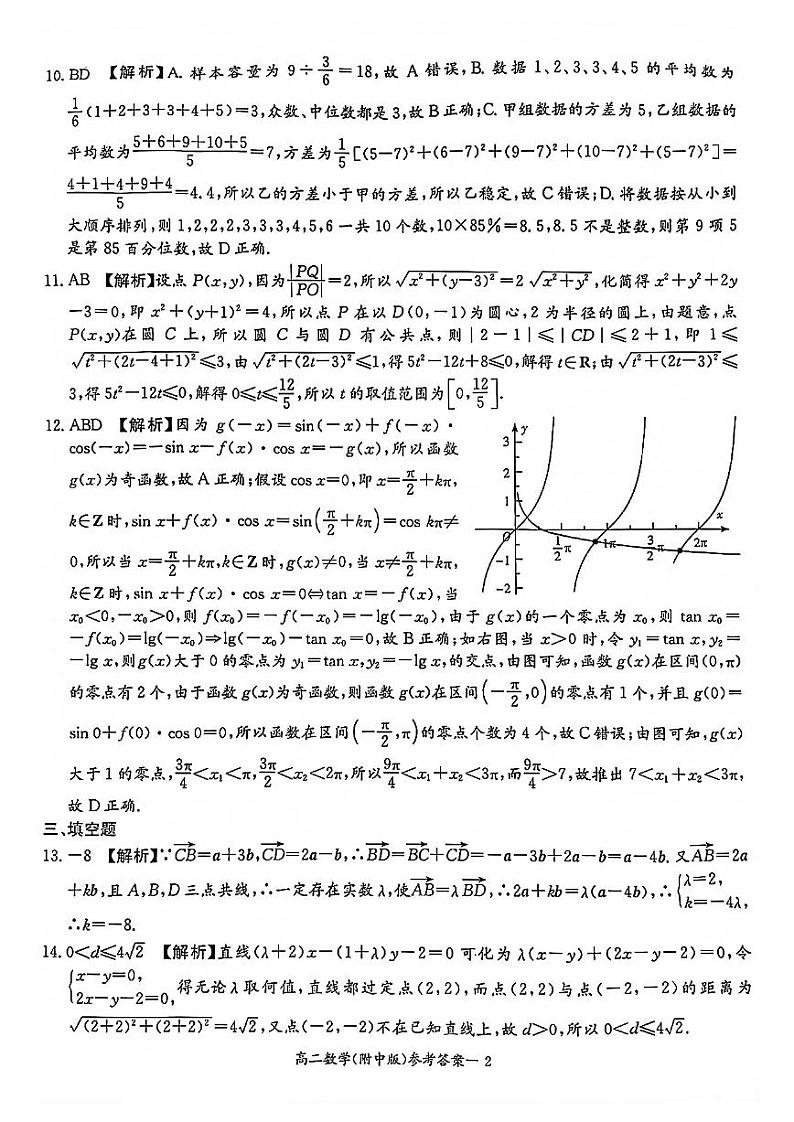 10. BD 【解析】A. 样本容量为 9÷3/6=18,故 A 错误,B. 数据 1、2、3、3、4、5 的平均数为
1/6(1+2+3+3+4+5)=3,众数、中位数都是 3,故 B 正确;C. 甲组数据的方差为 5,乙组数据的
平均数为(5+6+9+10+5)/5=7,方差为1/5[(5-7)²+(6-7)²+(9-7)²+(10-7)²+(5-7)²]=
(4+1+4+9+4)/5=4.4,所以乙的方差小于甲的方差,所以乙稳定,故 C 错误;D. 将数据按从小到
大顺序排列,则 1,2,2,2,3,3,3,4,5,6 一共 10 个数,10×85%=8.5,8.5 不是整数,则第 9 项 5
是第 85 百分位数,故 D 正确.
11. AB 【解析】设点 P(x,y),因为|PQ|/|PO|=2,所以 √(x²+(y-3)²)=2 √(x²+y²),化简得 x²+y²+2y
-3=0,即 x²+(y+1)²=4,所以点 P 在以 D(0,-1)为圆心,2 为半径的圆上,由题意,点
P(x,y)在圆 C 上,所以圆 C 与圆 D 有公共点,则|2-1|≤|CD|≤2+1,即 1≤
√(t²+(2t-4+1)²)≤3,由√(t²+(2t-3)²)≤1,得5t²-12t+8≤0,解得t∈R;由√(t²+(2t-3)²)≤
3,得5t²-12t≤0,解得 0≤t≤12/5,所以 t 的取值范围为[0,12/5].
12. ABD 【解析】因为 g(-x)=sin(-x)+f(-x)·
cos(-x)=-sin x-f(x)·cos x=-g(x),所以函数
g(x)为奇函数,故 A 正确;假设 cos x=0,即 x=π/2+kπ,
k∈Z 时,sin x+f(x)·cos x=sin(π/2+kπ)=cos kπ≠
0,所以当 x=π/2+kπ,k∈Z 时,g(x)≠0,当 x≠π/2+kπ,
k∈Z 时,sin x+f(x)·cos x=0⇔tan x=-f(x),当
3
2
1
-1
-2
y
x
O
1/2π
1π
3/2π
2π
x₀<0,-x₀>0,则 f(x₀)=-f(-x₀)=-lg(-x₀),由于 g(x)的一个零点为 x₀,则 tan x₀=
-f(x₀)=lg(-x₀)⇒lg(-x₀)-tan x₀=0,故 B 正确;如右图,当 x>0 时,令 y₁=tan x,y₂=
-lg x,则g(x)大于 0 的零点为 y₁=tan x,y₂=-lg x,的交点,由图可知,函数 g(x)在区间(0,π)
的零点有 2 个,由于函数 g(x)为奇函数,则函数 g(x)在区间(-π/2,0)的零点有 1 个,并且 g(0)=
sin 0+f(0)·cos 0=0,所以函数在区间(-π/2,π)的零点个数为 4 个,故 C 错误;由图可知,g(x)
大于 1 的零点,3π/4<x₁<π,3π/2<x₂<2π,所以9π/4<x₁+x₂<3π,而9π/4>7,故推出 7<x₁+x₂<3π,
故 D 正确.
三、填空题
13. -8 【解析】∵CB=a+3b,CD=2a-b,∴BD=BC+CD=-a-3b+2a-b=a-4b. 又AB=2a
+kb,且 A,B,D 三点共线,∴一定存在实数 λ,使AB=λBD,∴2a+kb=λ(a-4b),∴{λ=2, k=-4λ,
∴k=-8.
14. 0<d≤4√2 【解析】直线(λ+2)x-(1+λ)y-2=0 可化为 λ(x-y)+(2x-y-2)=0,令
{x-y=0, 2x-y-2=0,得无论 λ 取何值,直线都过定点(2,2),而点(2,2)与点(-2,-2)的距离为
√((2+2)²+(2+2)²)=4√2,又点(-2,-2)不在已知直线上,故 d>0,所以 0<d≤4√2.
高二数学(附中版)参考答案— 2